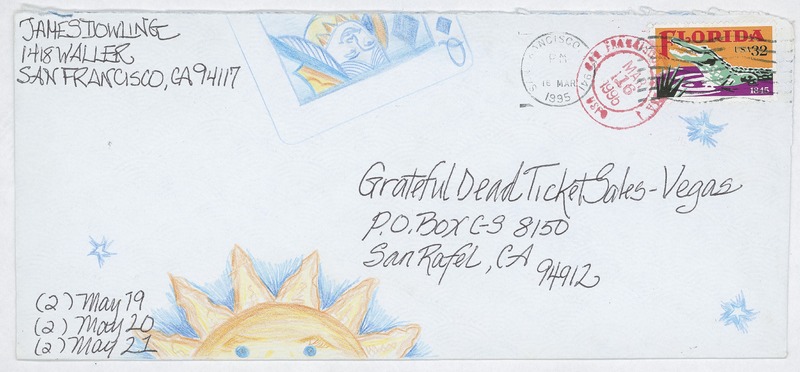 JAMES DOWLING
1418 WALLER
SAN FRANCISCO, CA 94117
FRANCISCO
PM
16 MAR
1995
SAN FRANCISCO
MAR
16
1995
USPO
FLORIDA
USA 32
1845
Grateful Dead Ticket Sales - Vegas
P.O. Box C-S 8150
San Rafel, CA
94912
(2) May 19
(2) May 20
(2) May 21